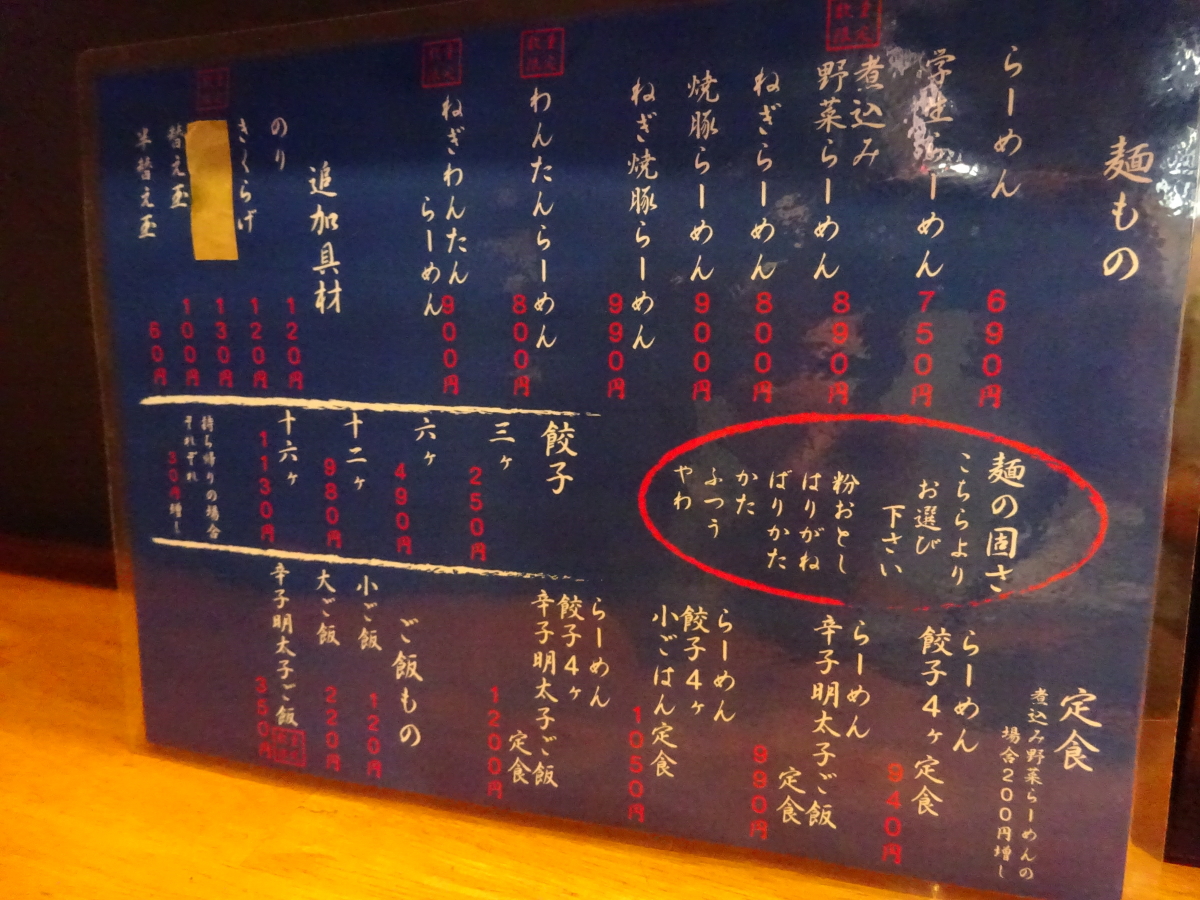 麺もの
らーめん
690円
学生らーめん
750円
数量限定
煮込み
野菜らーめん
890円
ねぎらーめん
800円
焼豚らーめん
900円
ねぎ焼豚らーめん
990円
数量限定
わんたんらーめん
800円
数量限定
ねぎわんたん
らーめん
900円
追加具材
のり
120円
きくらげ
120円
130円
替え玉
100円
半替え玉
60円
麺の固さ
こちらより
お選び
下さい
粉おとし
はりがね
ばりかた
かた
ふつう
やわ
餃子
三ヶ
250円
六ヶ
490円
十二ヶ
980円
十六ヶ
1130円
持ち帰りの場合
それぞれ
30円増し
定食
煮込み野菜らーめんの
場合200円増し
らーめん
餃子4ヶ定食
940円
らーめん
辛子明太子ご飯
定食
990円
らーめん
餃子4ヶ
小ごはん定食
1050円
らーめん
餃子4ヶ
辛子明太子ご飯
定食
1200円
ご飯もの
小ご飯
120円
大ご飯
220円
辛子明太子ご飯
350円